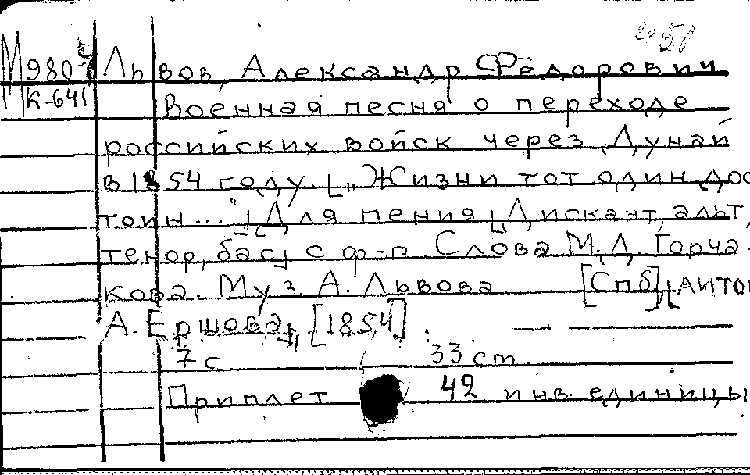 М980
Львов, Александр Фёдорович
К-641
Военная песня о переходе
российских войск через Дунай
в 1854 году. [„Жизни тот один дос
тоин..."] [Для пения [Дискант, альт,
тенор, бас] с ф-п Слова М.Д. Горча-
кова. Муз А. Львова [Спб], [Литог
А. Ершова], [1854]
7 с 33 cm.
Приплет 42 инв. единицы